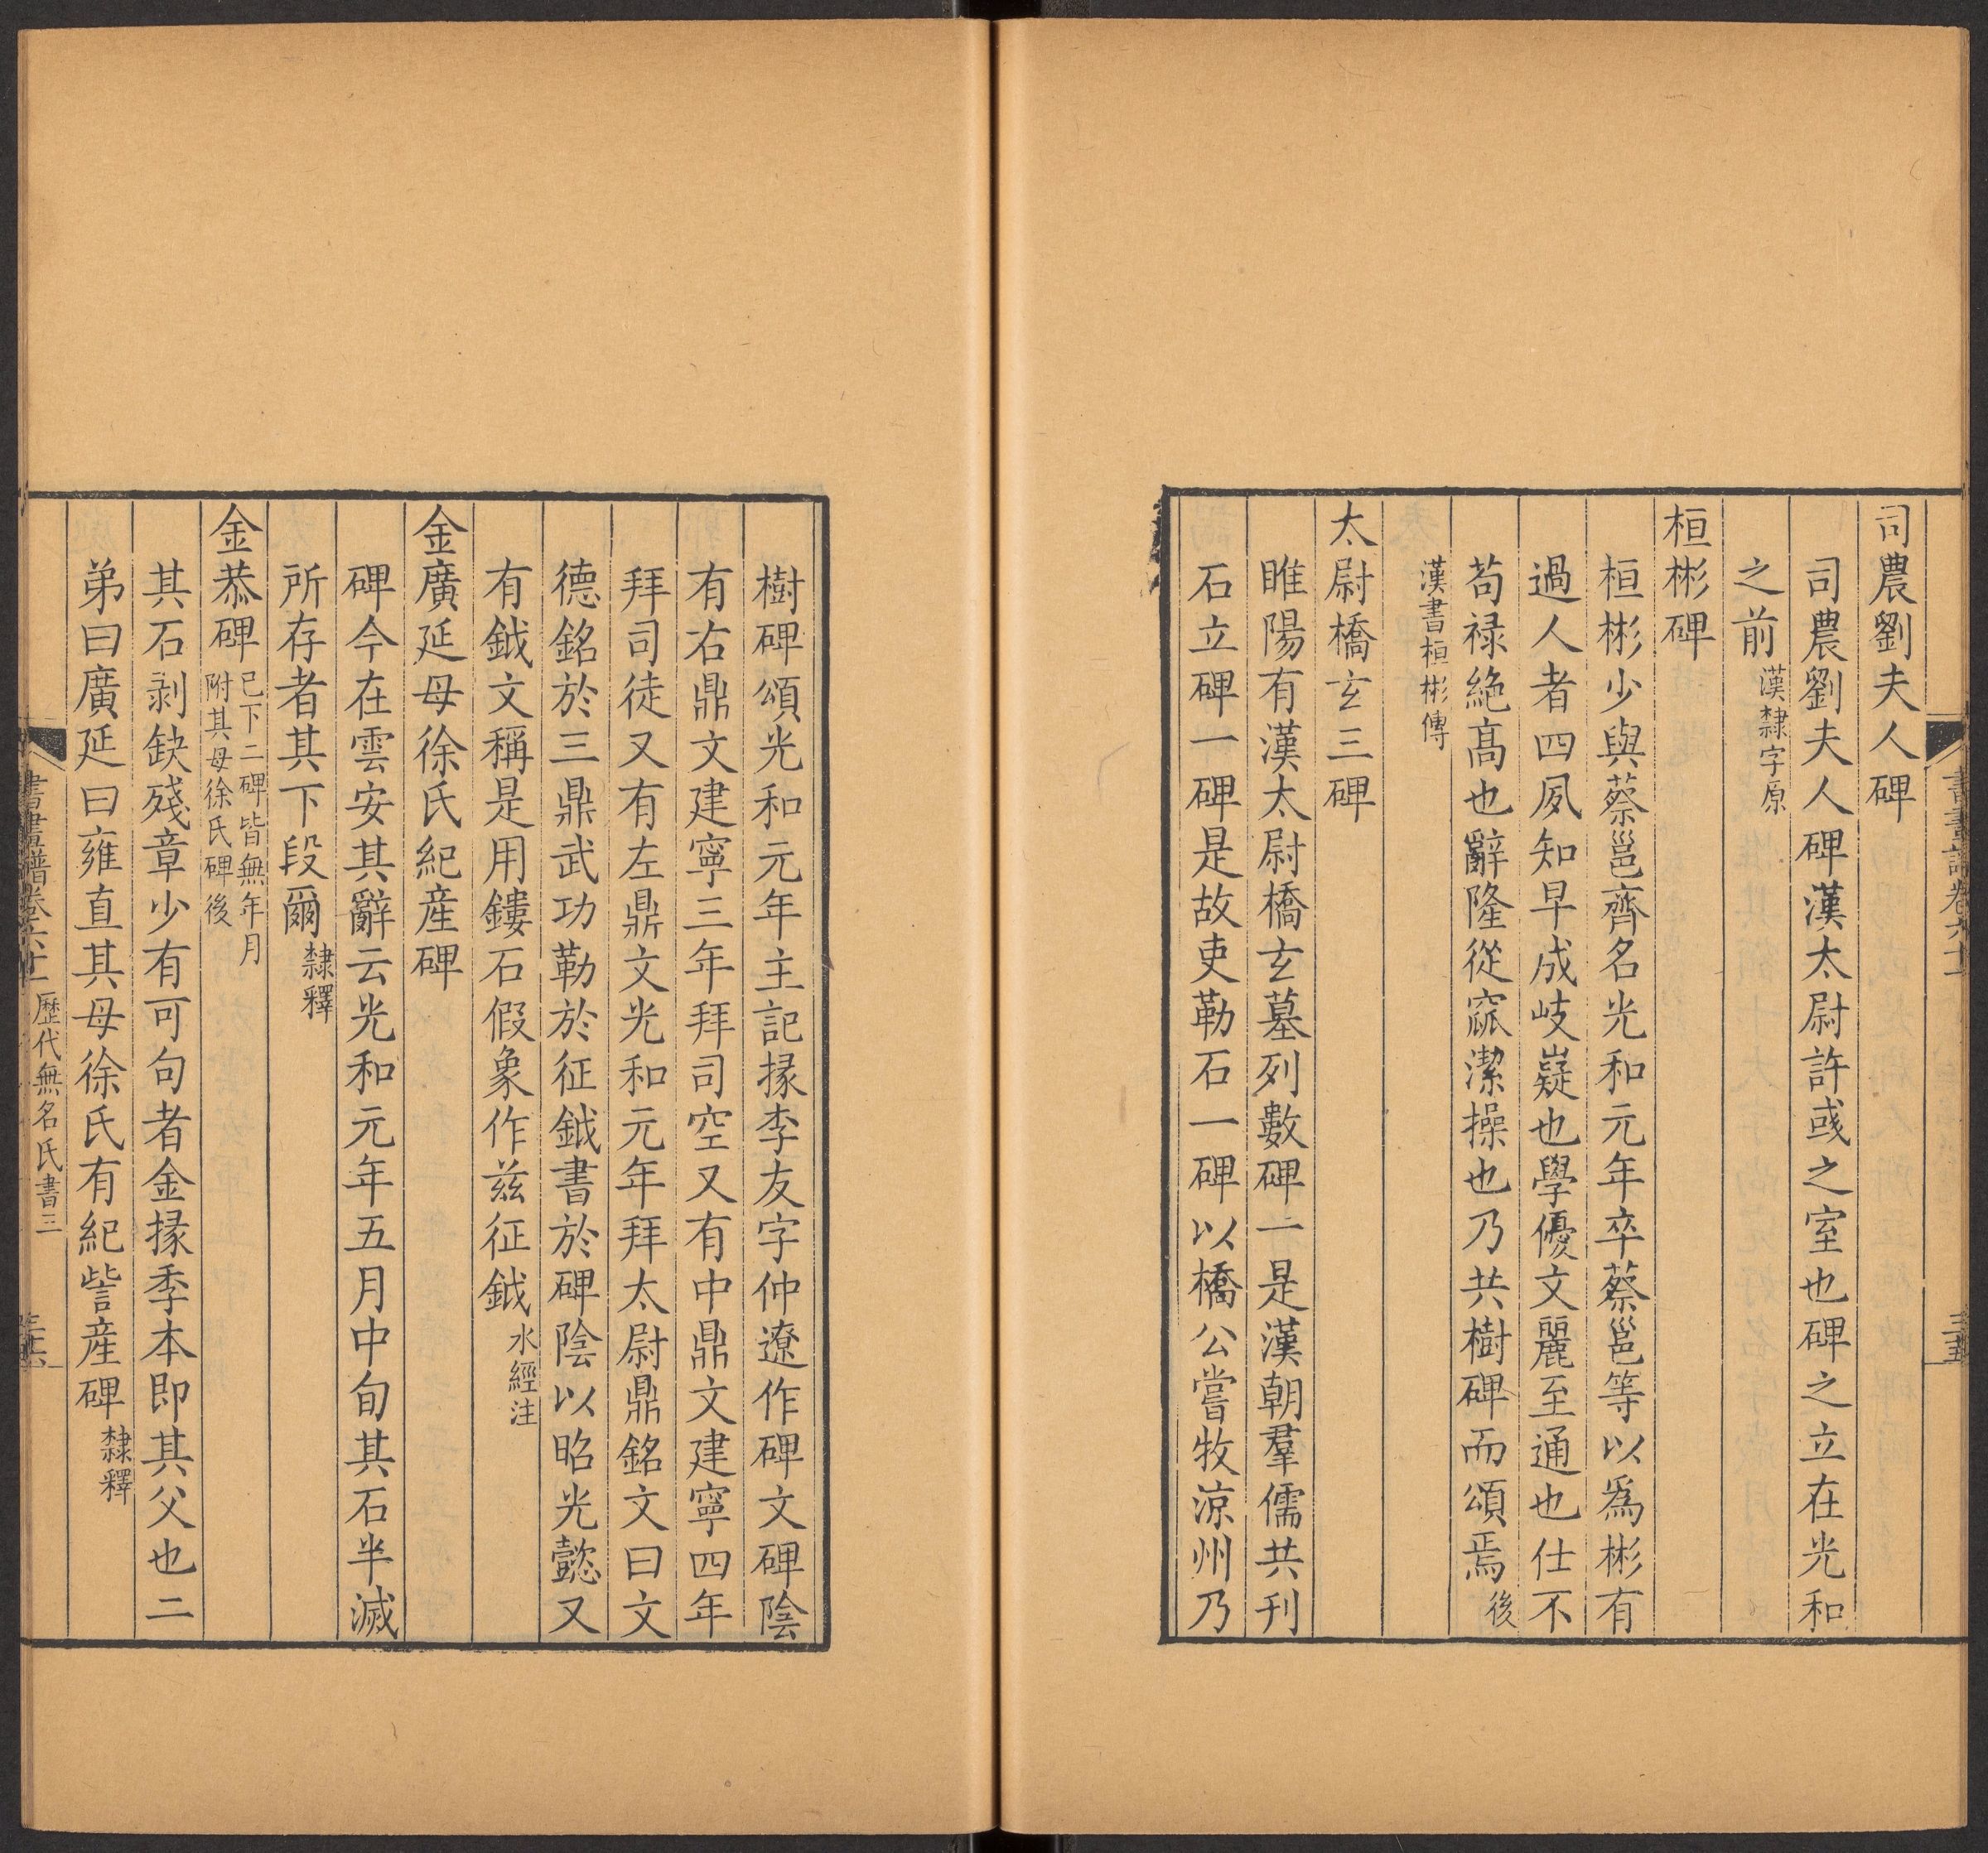 司農劉夫人碑
司農劉夫人碑漢太尉許彧之室也碑之立在光和
之前漢隸字原
桓彬碑
桓彬少與蔡邕齊名光和元年卒蔡邕等以爲彬有
過人者四夙知早成岐嶷也學優文麗至通也仕不
苟祿絶高也辭隆從窳潔操也乃共樹碑而頌焉後
漢書桓彬傳
太尉橋玄三碑
睢陽有漢太尉橋玄墓列數碑一是漢朝羣儒共刊
石立碑一碑是故吏勒石一碑以橋公嘗牧涼州乃
樹碑頌光和元年主記掾李友字仲遼作碑文碑陰
有右鼎文建寧三年拜司空又有中鼎文建寧四年
拜司徒又有左鼎文光和元年拜太尉鼎銘文曰文
德銘於三鼎武功勒於征鉞書於碑陰以昭光懿又
有鉞文稱是用鏤石假象作兹征鉞水經注
金廣延母徐氏紀産碑
碑今在雲安其辭云光和元年五月中旬其石半滅
所存者其下段爾隸釋
金恭碑已下二碑皆無年月
附其母徐氏碑後
其石剥缺殘章少有可句者金掾季本即其父也二
弟曰廣延曰雍直其母徐氏有紀訾産碑隸釋
書畫譜卷六十一 歷代無名氏書三